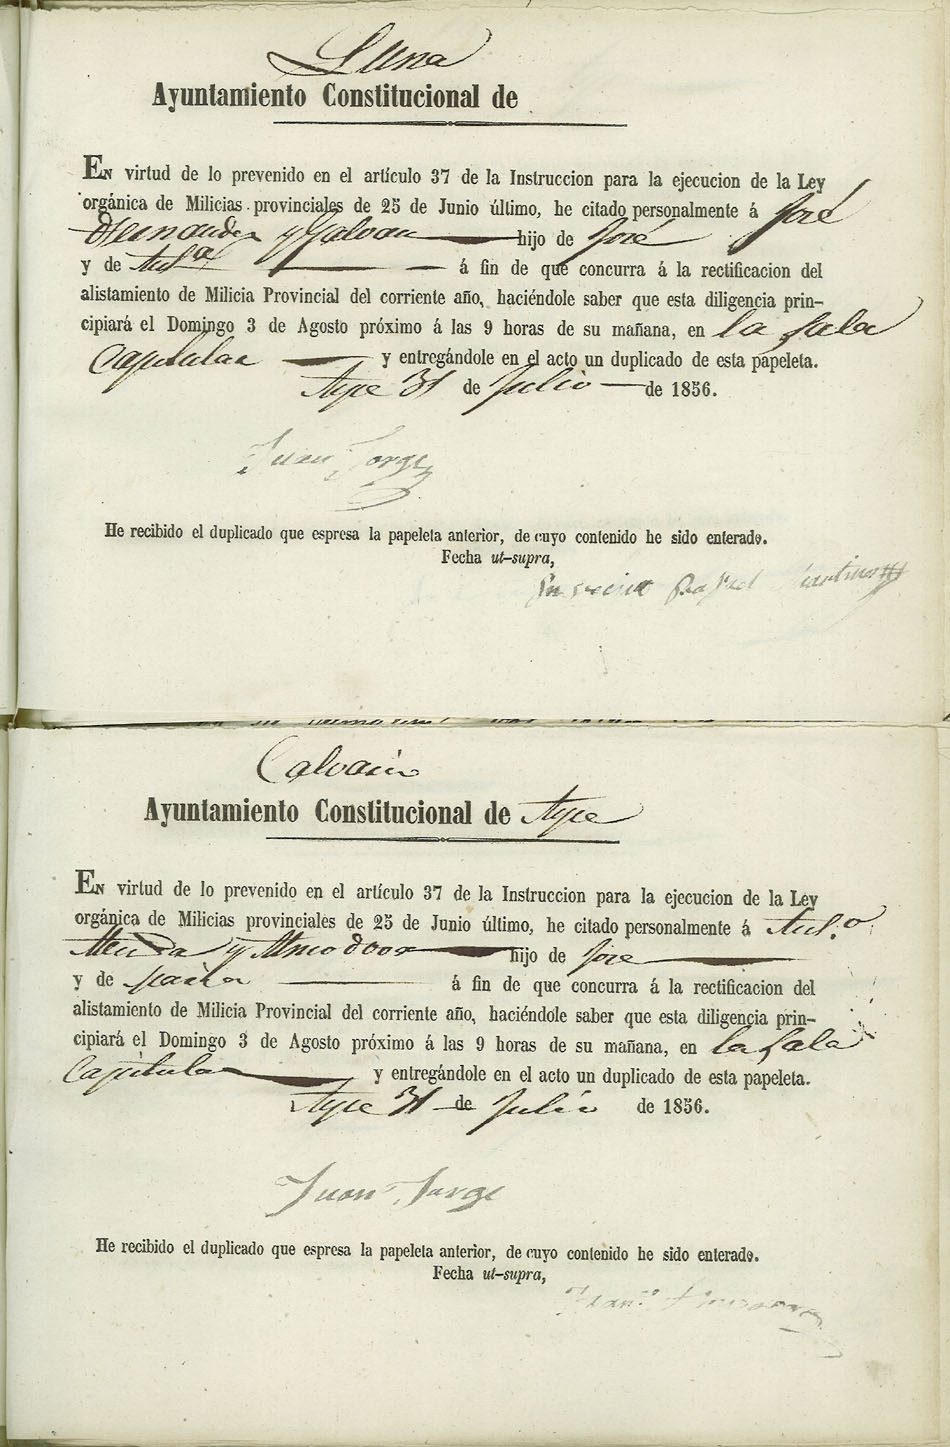 Luna
Ayuntamiento Constitucional de
EN virtud de lo prevenido en el artículo 37 de la Instruccion para la ejecucion de la Ley
orgánica de Milicias provinciales de 25 de Junio último, he citado personalmente á José
Hernandez y Galvan hijo de José
y de Antª á fin de que concurra á la rectificacion del
alistamiento de Milicia Provincial del corriente año, haciéndole saber que esta diligencia prin-
cipiará el Domingo 3 de Agosto próximo á las 9 horas de su mañana, en la Sala
Capitular y entregándole en el acto un duplicado de esta papeleta.
Aspe 31 de Julio de 1856.
Juan Jorge
He recibido el duplicado que espresa la papeleta anterior, de cuyo contenido he sido enterado.
Fecha ut-supra,
Rafael Martinez
Calvario
Ayuntamiento Constitucional de Aspe
EN virtud de lo prevenido en el artículo 37 de la Instruccion para la ejecucion de la Ley
orgánica de Milicias provinciales de 25 de Junio último, he citado personalmente á Ant.º
y Almodovar hijo de Jose
y de Maria á fin de que concurra á la rectificacion del
alistamiento de Milicia Provincial del corriente año, haciéndole saber que esta diligencia prin-
cipiará el Domingo 3 de Agosto próximo á las 9 horas de su mañana, en la Sala
Capitular y entregándole en el acto un duplicado de esta papeleta.
Aspe 31 de Julio de 1856.
Juan Jorge
He recibido el duplicado que espresa la papeleta anterior, de cuyo contenido he sido enterado.
Fecha ut-supra,
Fran.º